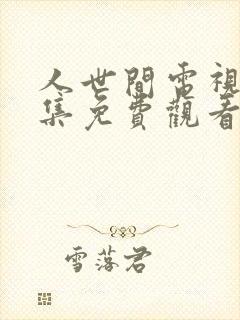 人世間電視
集免費觀看
雪落君